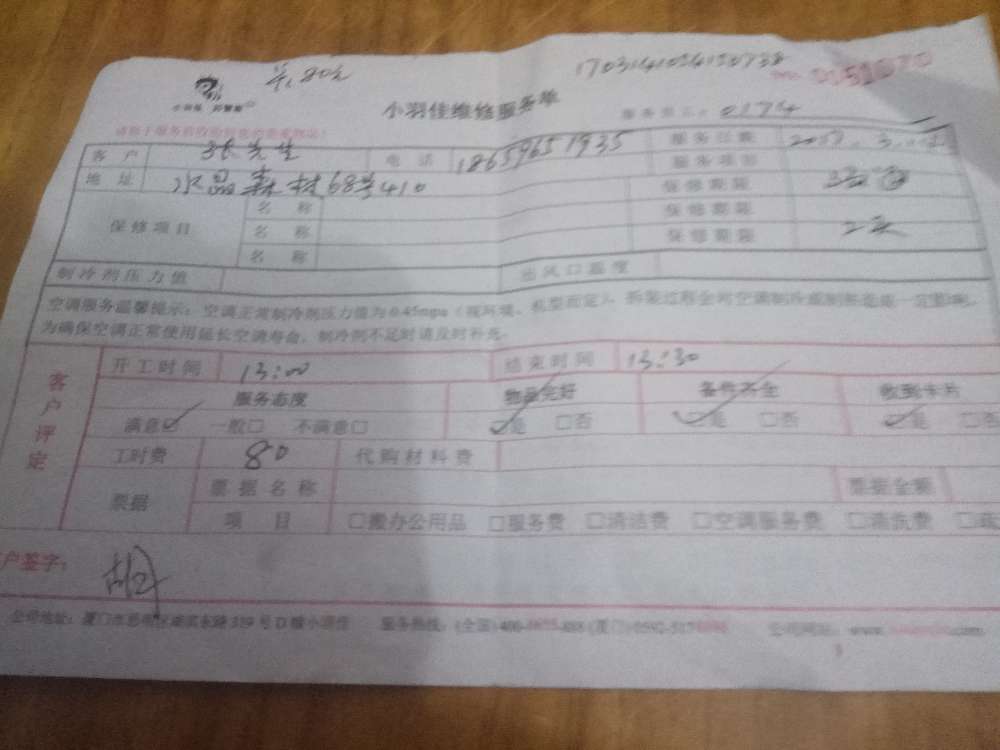 单:80元 17031410241
小羽佳维修服务单
服务员工: 0174
客户 张先生 电话 18659651935 服务日期
地址 水晶森林68号410 服务项目
保修项目 名称 保修期限
名称 保修期限
名称 保修期限
制冷剂压力值 出风口温度
空调服务温馨提示:空调正常制冷剂压力值为0.45mpa(视环境、机型而定),拆装过程会对空调制冷或制热造成一定影响,
为确保空调正常使用延长空调寿命,制冷剂不足时请及时补充。
客户评定
开工时间 13:00 结束时间 13:30
服务态度 物品完好 备件齐全 收到卡片
满意☑ 一般□ 不满意□ ☑是 □否 ☑是 □否 ☑是 □否
工时费 80 代购材料费
票据 票据名称 票据金额
项目 □搬办公用品 □服务费 □清洁费 □空调服务费 □清洗费
户签字:
公司地址:厦门市思明区 319号D幢小羽佳 服务热线:(全国)400 (厦门)0592-517 公司网址:www. .com